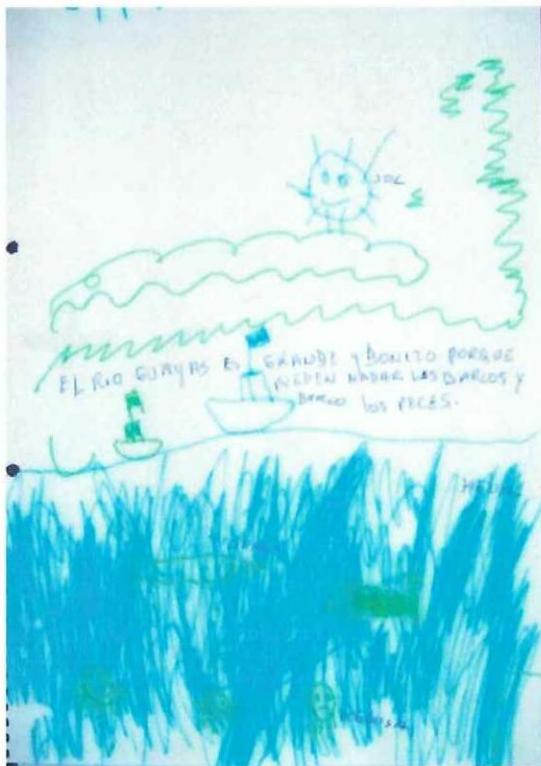 SOL
EL RIO GUAYAS ES GRANDE Y BONITO PORQUE
PUEDEN NADAR LOS BARCOS Y
BARCO los PECES.